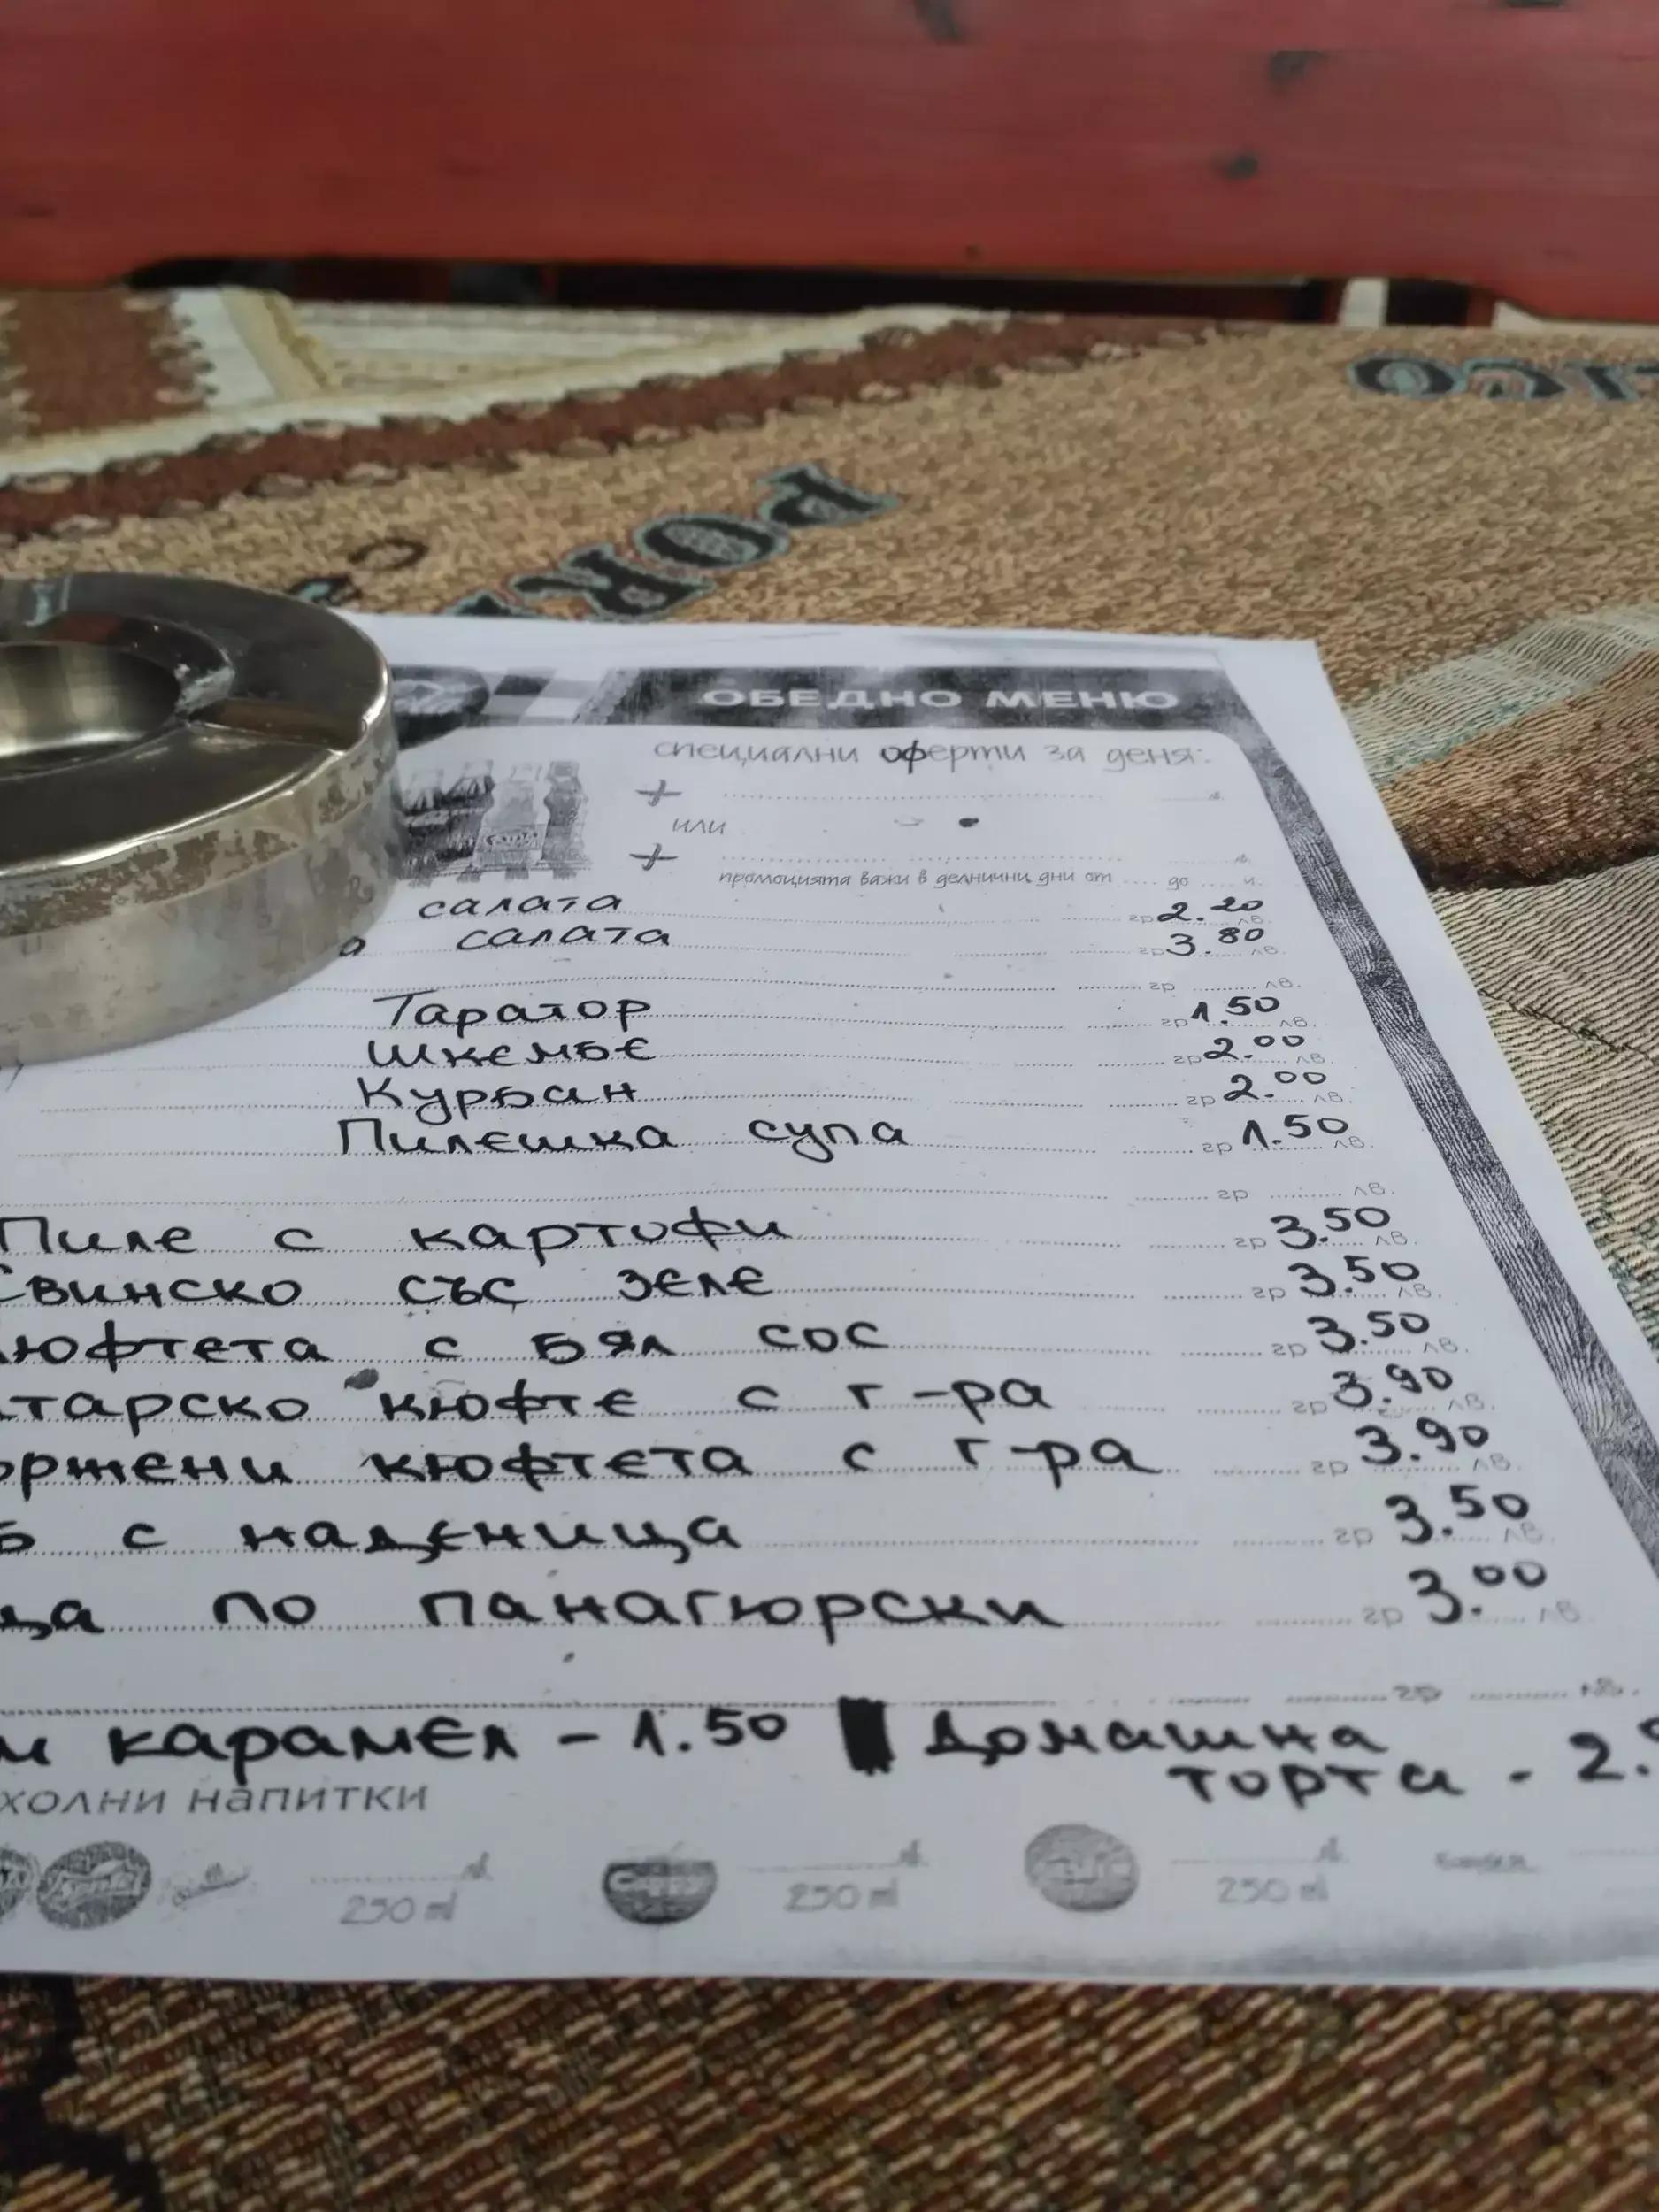 ОБЕДНО МЕНЮ
специални оферти за деня:
+
или
+
промоцията важи в делнични дни от до ч.
салата гр 2.20 лв.
а салата гр 3.80 лв.
гр лв.
Таратор гр 1.50 лв.
Шкембе гр 2.00 лв.
Курбан гр 2.00 лв.
Пилешка супа гр 1.50 лв.
гр лв.
Пиле с картофи гр 3.50 лв.
Свинско със зеле гр 3.50 лв.
кюфтета с бял сос гр 3.50 лв.
тарско кюфте с г-ра гр 3.90 лв.
ържени кюфтета с г-ра гр 3.90 лв.
б с наденица гр 3.50 лв.
ца по панагюрски гр 3.00 лв.
гр лв.
м карамел - 1.50 Домашна
торта - 2.
холни напитки
Cappy
250 ml 250 ml 250 ml